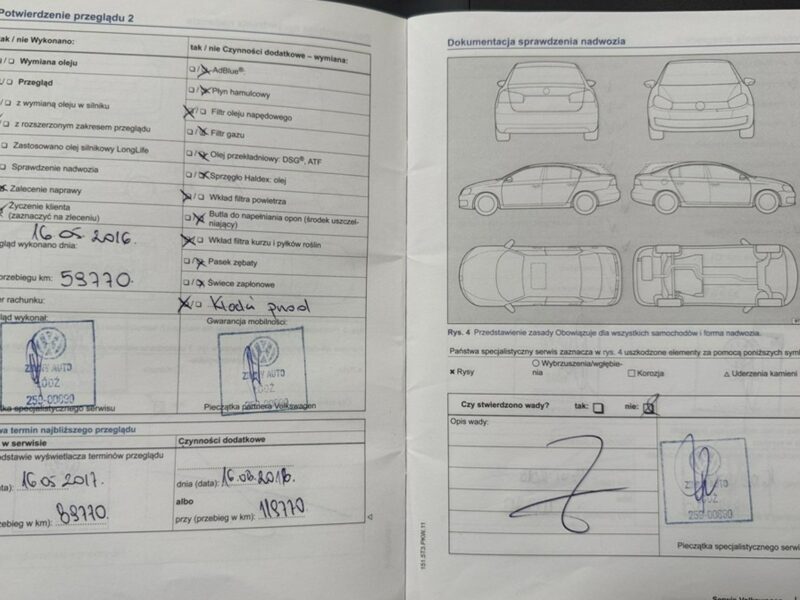 Potwierdzenie przeglądu 2
tak / nie Wykonano:
Wymiana oleju
Przegląd
z wymianą oleju w silniku
z rozszerzonym zakresem przeglądu
Zastosowano olej silnikowy LongLife
Sprawdzenie nadwozia
Zalecenie naprawy
Życzenie klienta
(zaznaczyć na zleceniu)
16.05.2016.
gląd wykonano dnia:
przebiegu km: 59770.
er rachunku:
gląd wykonał:
ZIMNY AUTO
ŁÓDŹ
259-00690
tka specjalistycznego serwisu
tak / nie Czynności dodatkowe – wymiana:
AdBlue®
Płyn hamulcowy
Filtr oleju napędowego
Filtr gazu
Olej przekładniowy: DSG®, ATF
Sprzęgło Haldex: olej
Wkład filtra powietrza
Butla do napełniania opon (środek uszczel-
niający)
Wkład filtra kurzu i pyłków roślin
Pasek zębaty
Świece zapłonowe
Gwarancja mobilności:
ZIMNY AUTO
ŁÓDŹ
259-00690
Pieczątka partnera Volkswagen
wa termin najbliższego przeglądu
w serwisie
dstawie wyświetlacza terminów przeglądu
ata): 16.05.2017.
zebieg w km): 89770.
Czynności dodatkowe
dnia (data): 16.08.2018.
albo
przy (przebieg w km): 119770
Dokumentacja sprawdzenia nadwozia
Rys. 4 Przedstawienie zasady Obowiązuje dla wszystkich samochodów i forma nadwozia.
Państwa specjalistyczny serwis zaznacza w rys. 4 uszkodzone elementy za pomocą poniższych symb
Rysy
Wybrzuszenia/wgłębie-
nia
Korozja
Uderzenia kamieni
Czy stwierdzono wady? tak: nie:
Opis wady:
ZIMNY AUTO
ŁÓDŹ
259-00690
Pieczątka specjalistycznego serwisu
151.5T3.PKW.11
Serwis Volkswagen